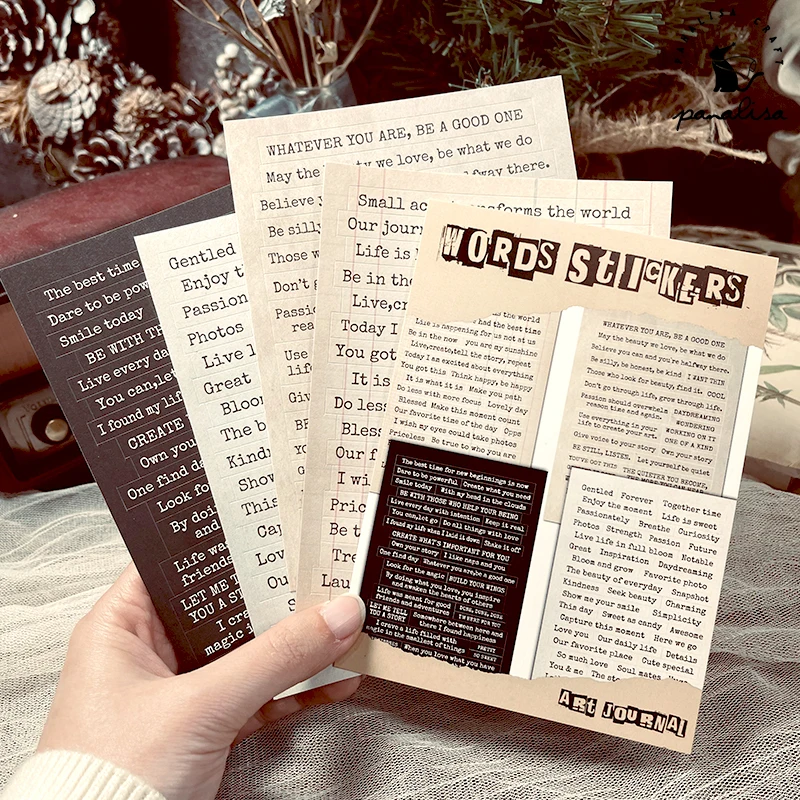 PANALISA CRAFT
panalisa
WHATEVER YOU ARE, BE A GOOD ONE
May the beauty we love, be what we do
halfway there.
Believe y
Be silly
Those w
Don't g
Passio
rea
Use
life
Giv
BE
Small ac transforms the world
Our jour
Life is h
Be in the
Live,cr
Today I
You got
It is
Do less
Bless
Our f
I wi
Pric
Be t
Tre
Laug
The best time
Dare to be pow
Smile today
BE WITH TH
Live every da
You can,let
I found my lif
CREATE
Own you
One find da
Look fo
By doi
and
Life wa
friends
LET ME T
YOU A ST
I cra
magic i
Gentled
Enjoy t
Passion
Photos
Live l
Great
Bloom
The b
Kind
Show
This
Cap
Lov
Ou
WORDS STICKERS
had the best time
Life is happening for us not at us
Be in the now you are my sunshine
Live,create,tell the story, repeat
Today I am excited about everything
You got this Think happy, be happy
It is what it is Make you path
Do less with more focus Lovely day
Blessed Make this moment count
Our favorite time of the day Opps
I wish my eyes could take photos
Priceless Be true to who you are
WHATEVER YOU ARE, BE A GOOD ONE
May the beauty we love, be what we do
Believe you can and you're halfway there.
Be silly, be honest, be kind I WANT THIN
Those who look for beauty, find it. COOL
Don't go through life, grow through life.
Passion should overwhelm DAYDREAMING
reason time and again. WONDERING
Use everything in your WORKING ON IT
life to create your art. ONE OF A KIND
Give voice to your story Own your story
BE STILL, LISTEN, Let yourself be quiet
YOU'VE GOT THIS THE QUIETER YOU BECOME,
THE MORE YOU CAN HEAR
The best time for new beginnings is now
Dare to be powerful Create what you need
Smile today With my head in the clouds
BE WITH THOSE WHO HELP YOUR BEING
Live every day with intention Keep it real
You can,let go Do all things with love
I found my life when I laid it down Shake it off
CREATE WHAT'S IMPORTANT FOR YOU
Own your story I like naps and you
One find day Whatever you are,be a good one
Look for the magic BUILD YOUR WINGS
By doing what you love, you inspire
and awaken the hearts of others
Life was meant for good
friends and adventures
I'M HERE FOR YOU
LET ME TELL
YOU A STORY
Somewhere between here and
there I found happiness
I crave a life filled with
magic in the smallest of things
PRETTY
SO SWEET
When you love what you have
Gentled Forever Together time
Enjoy the moment Life is sweet
Passionately Breathe Curiosity
Photos Strength Passion Future
Live life in full bloom Notable
Great Inspiration Daydreaming
Bloom and grow Favorite photo
The beauty of everyday Snapshot
Kindness Seek beauty Charming
Show me your smile Simplicity
This day Sweet as candy Awesome
Capture this moment Here we go
Love you Our daily life Details
Our favorite place Cute special
So much love Soul mates
You & me The sto
ART JOURNAL